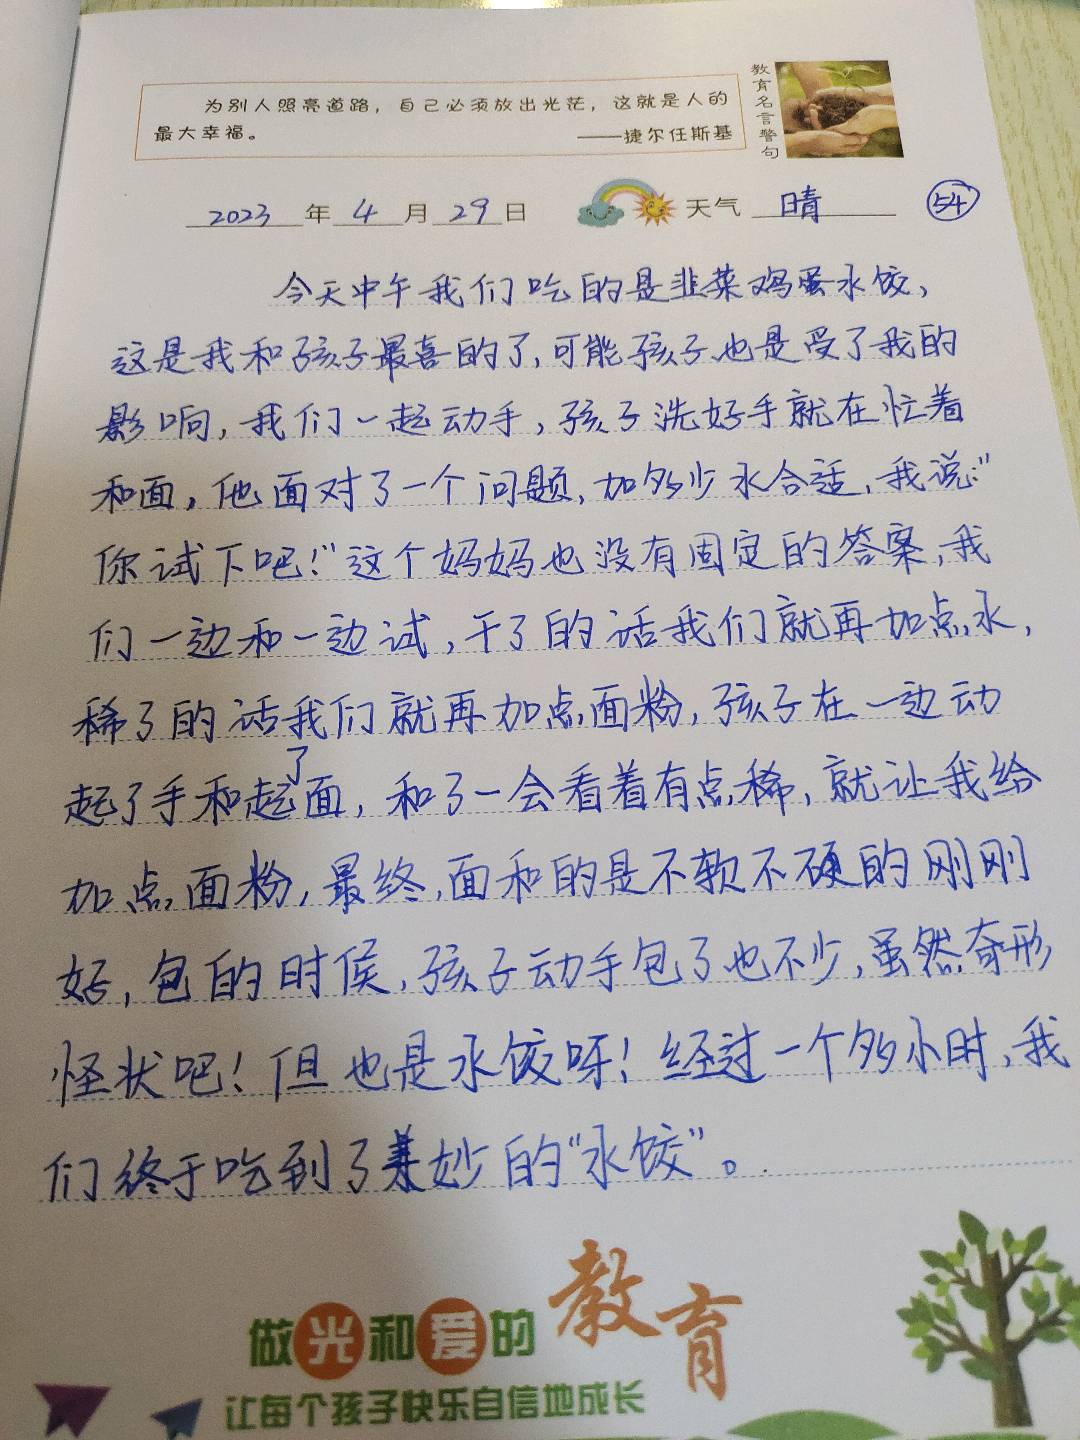 为别人照亮道路，自己必须放出光芒，这就是人的
最大幸福。
——捷尔任斯基
教育名言警句
2023年4月29日
天气 晴
54
今天中午我们吃的是韭菜鸡蛋水饺，
这是我和孩子最喜的了，可能孩子也是受了我的
影响，我们一起动手，孩子洗好手就在忙着
和面，他面对了一个问题，加多少水合适，我说："
你试下吧！"这个妈妈也没有固定的答案，我
们一边和一边试，干了的话我们就再加点水，
稀了的话我们就再加点面粉，孩子在一边动
起了手和起了面，和了一会看着有点稀，就让我给
加点面粉，最终，面和的是不软不硬的刚刚
好，包的时候，孩子动手包了也不少，虽然奇形
怪状吧！但也是水饺呀！经过一个多小时，我
们终于吃到了美妙的"水饺"。
做光和爱的教育
让每个孩子快乐自信地成长